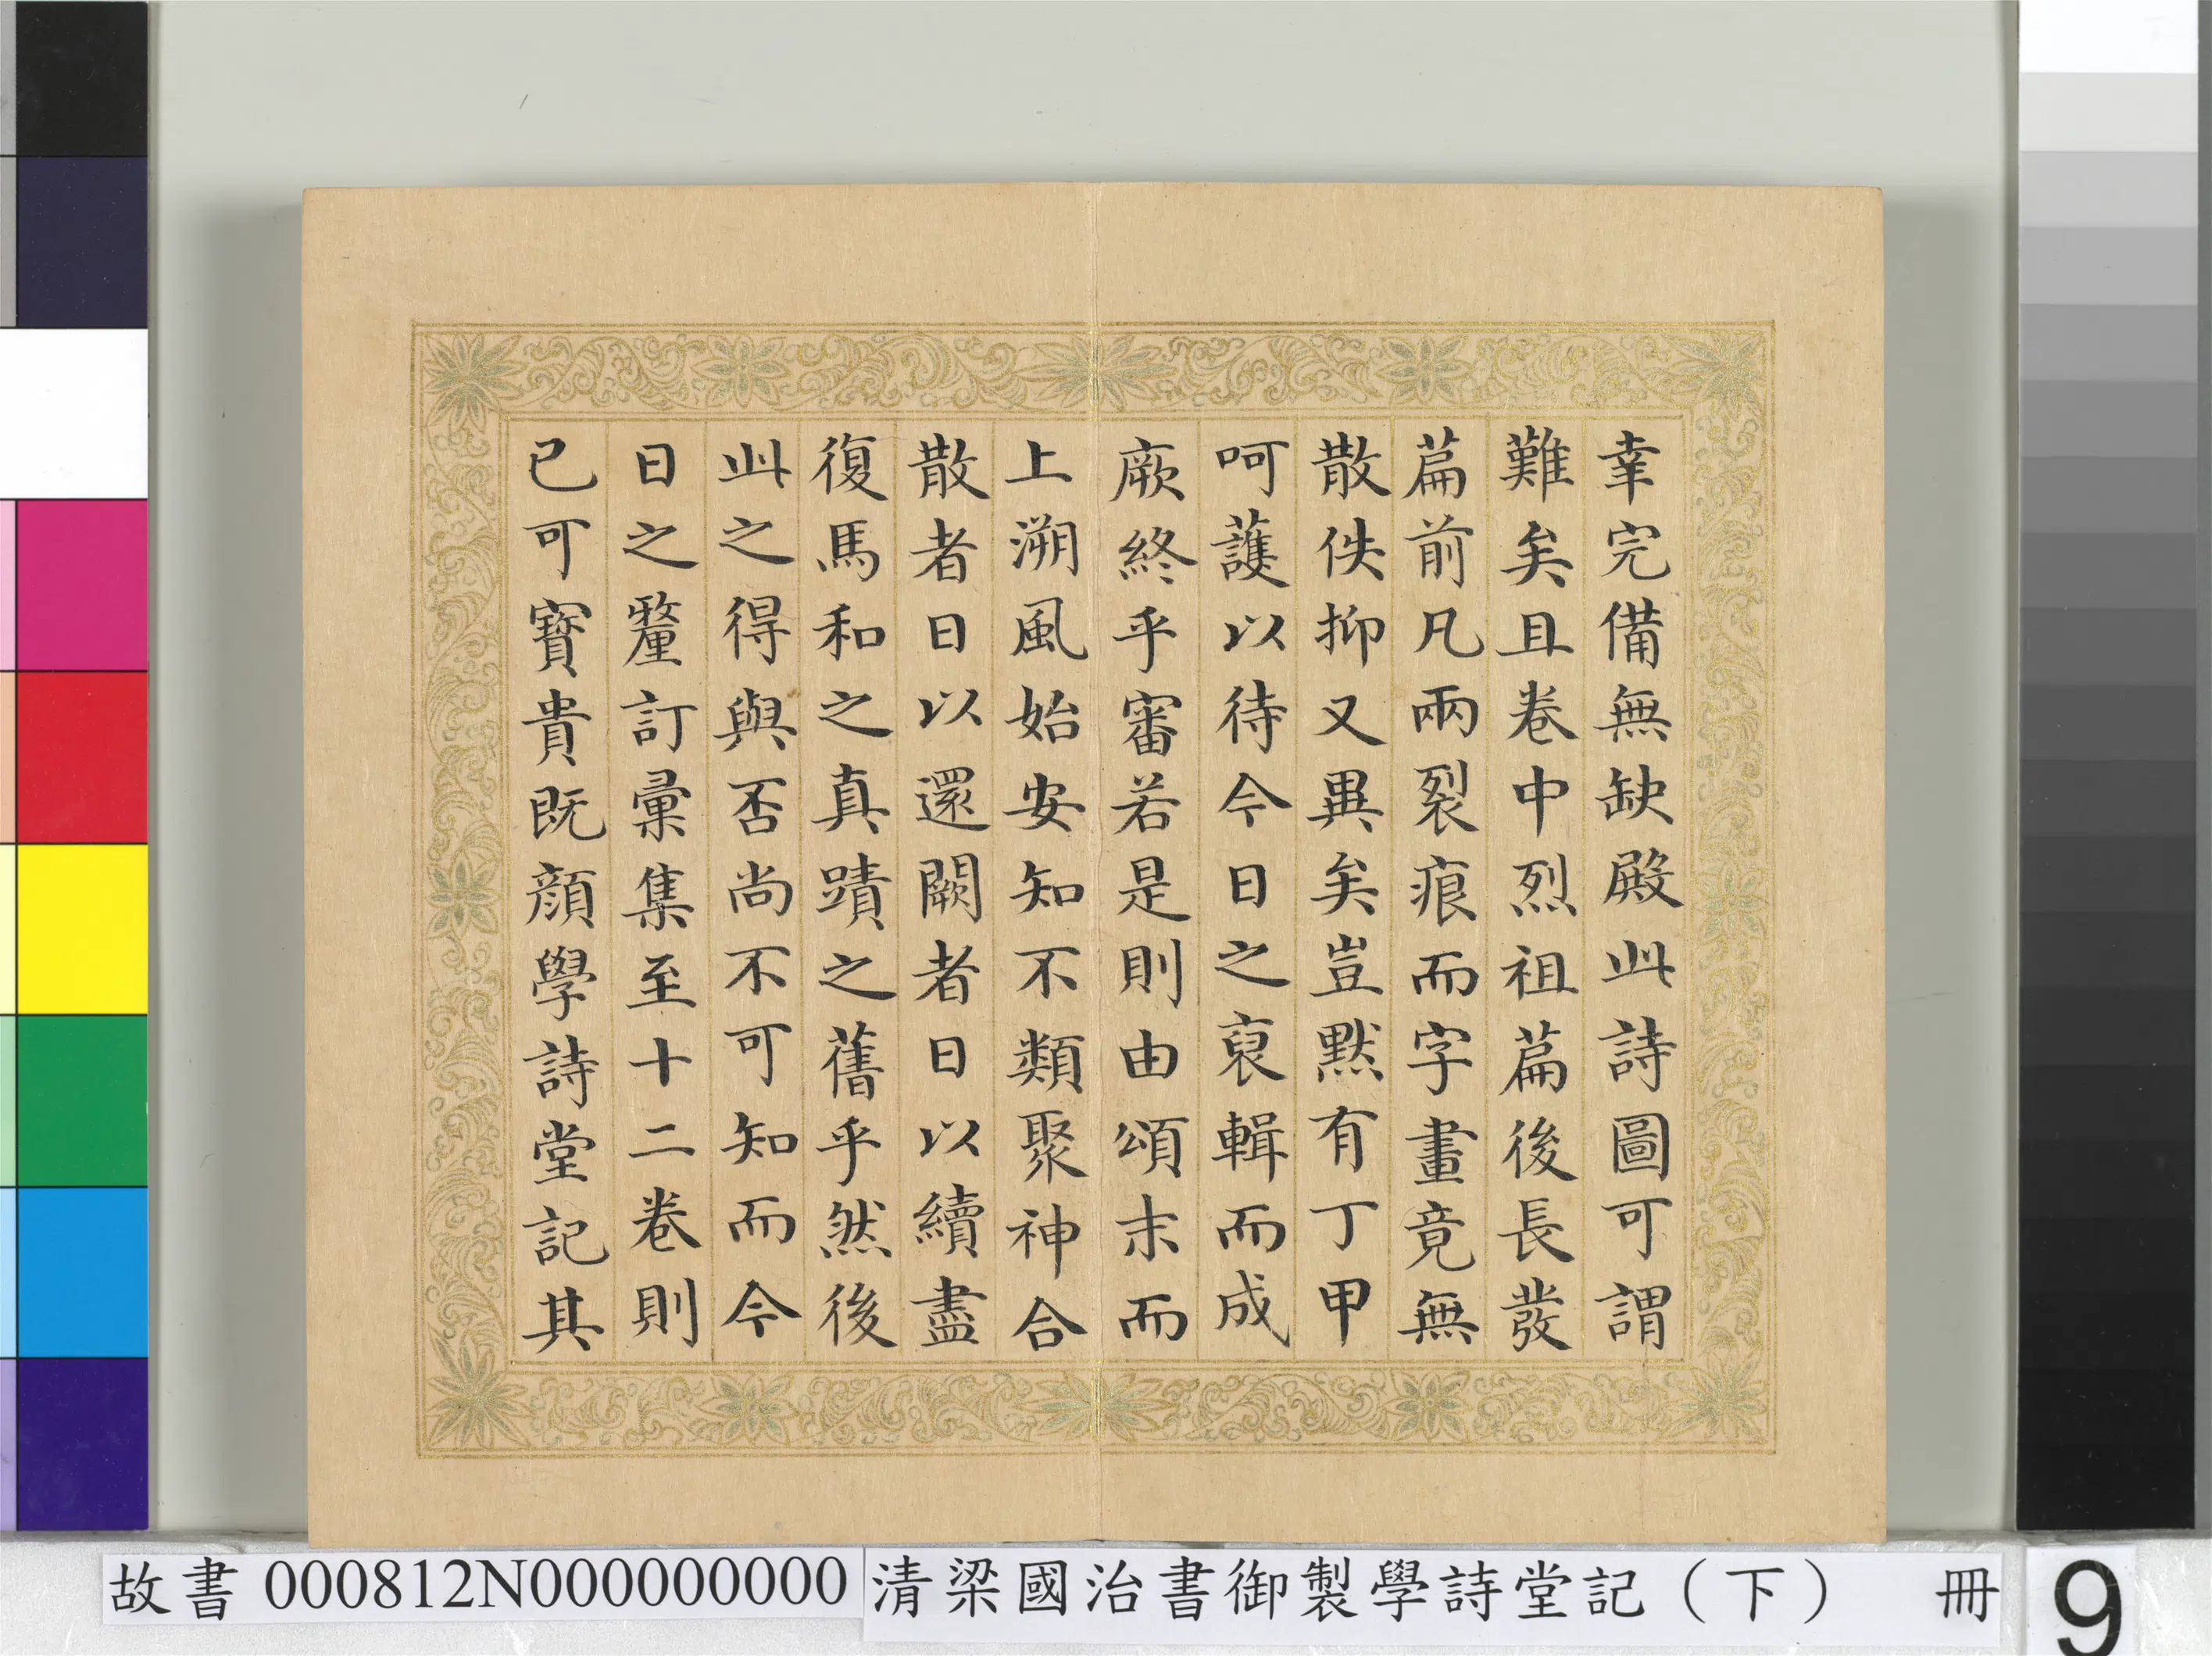 幸完備無缺殿此詩圖可謂
難矣且卷中烈祖篇後長發
篇前凡兩裂痕而字畫竟無
散佚抑又異矣豈默有丁甲
呵護以待今日之裒輯而成
厥終乎審若是則由頌末而
上溯風始安知不類聚神合
散者日以還闕者日以續盡
復馬和之真蹟之舊乎然後
此之得與否尚不可知而今
日之釐訂彙集至十二卷則
已可寶貴既顏學詩堂記其
故書 000812N000000000 清梁國治書御製學詩堂記（下） 冊 9